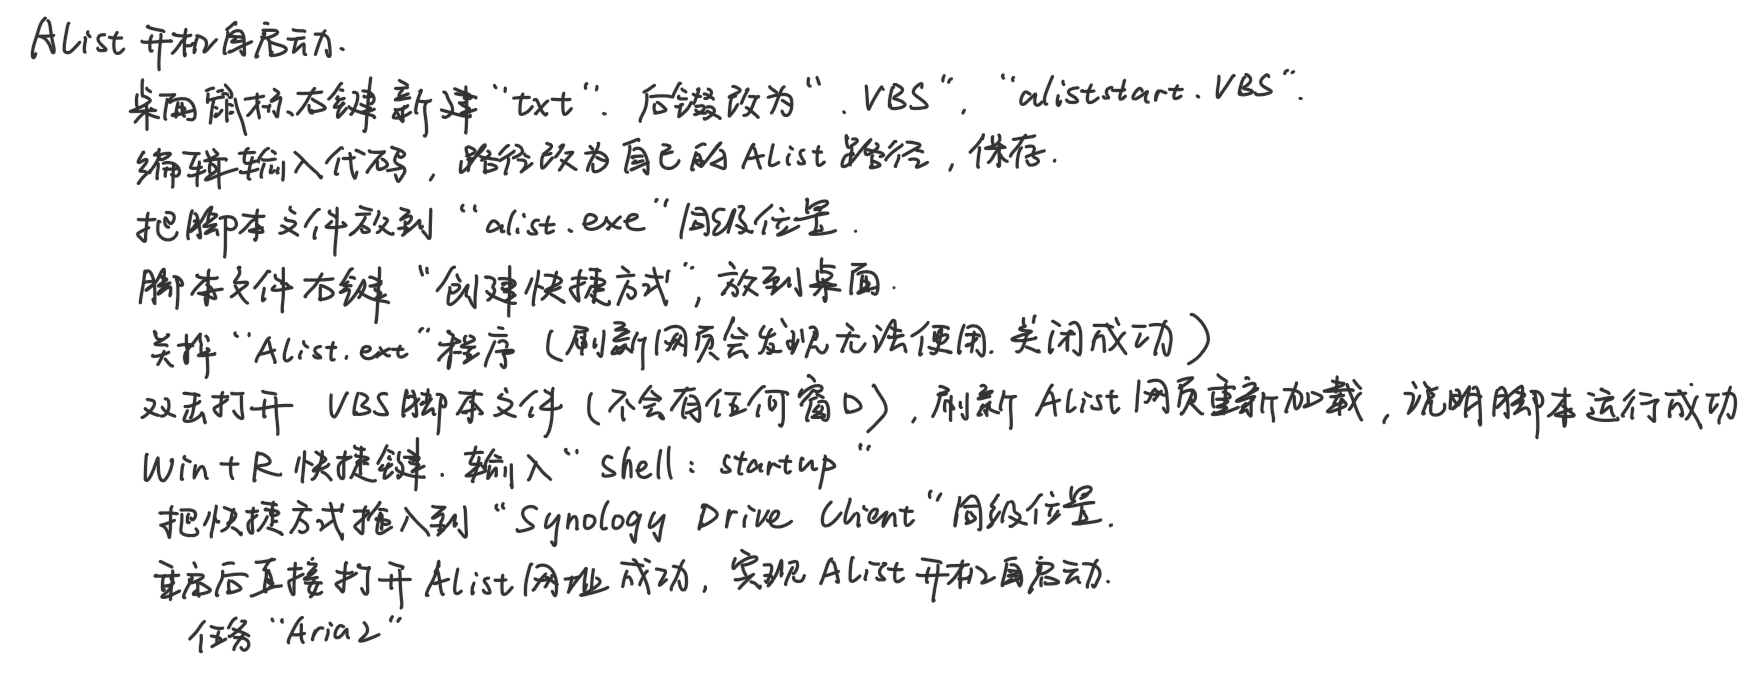 AList 开机自启动.
桌面鼠标右键新建“txt”. 后缀改为“.VBS”, “aliststart.VBS”.
编辑输入代码, 路径改为自己的 AList 路径, 保存.
把脚本文件放到“alist.exe”同级位置.
脚本文件右键“创建快捷方式”, 放到桌面.
关掉“Alist.ext”程序 (刷新网页会发现无法使用. 关闭成功)
双击打开 VBS 脚本文件 (不会有任何窗口), 刷新 AList 网页重新加载, 说明脚本运行成功
Win + R 快捷键. 输入“shell: startup”
把快捷方式拖入到“Synology Drive Client”同级位置.
重启后直接打开 AList 网址成功, 实现 AList 开机自启动.
任务“Aria2”